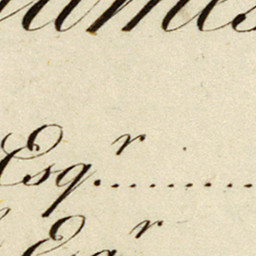 Names
Esqr..........
Esqr